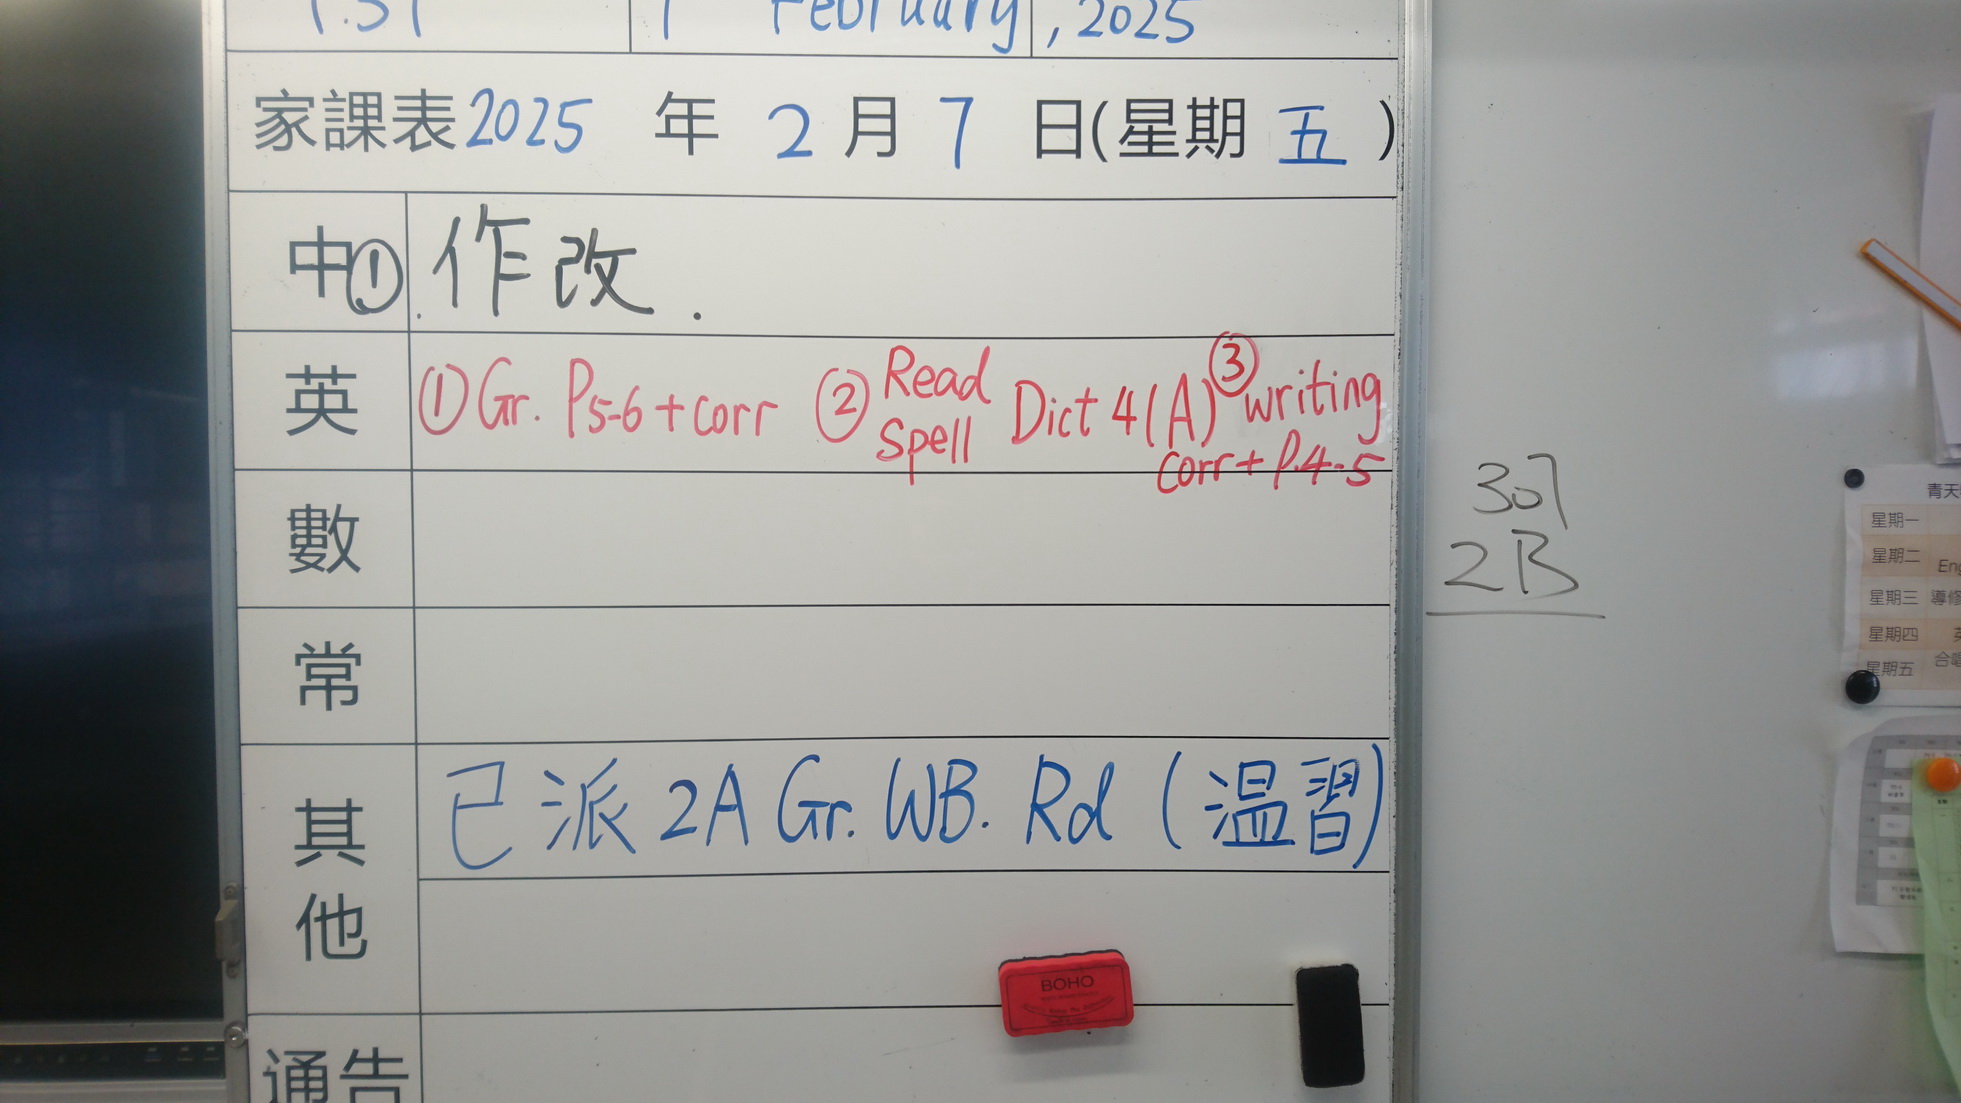 February, 2025
家課表2025 年 2 月 7 日(星期 五 )
中① 作改.
英 ①Gr. P5-6+corr ②Read Spell Dict 4(A) ③writing corr+P.4-5
數
常
其他 已派 2A Gr. WB. Rd (温習)
通告
BOHO
307
2B
青天
星期一
星期二 Eng
星期三 導修
星期四 英
星期五 合唱